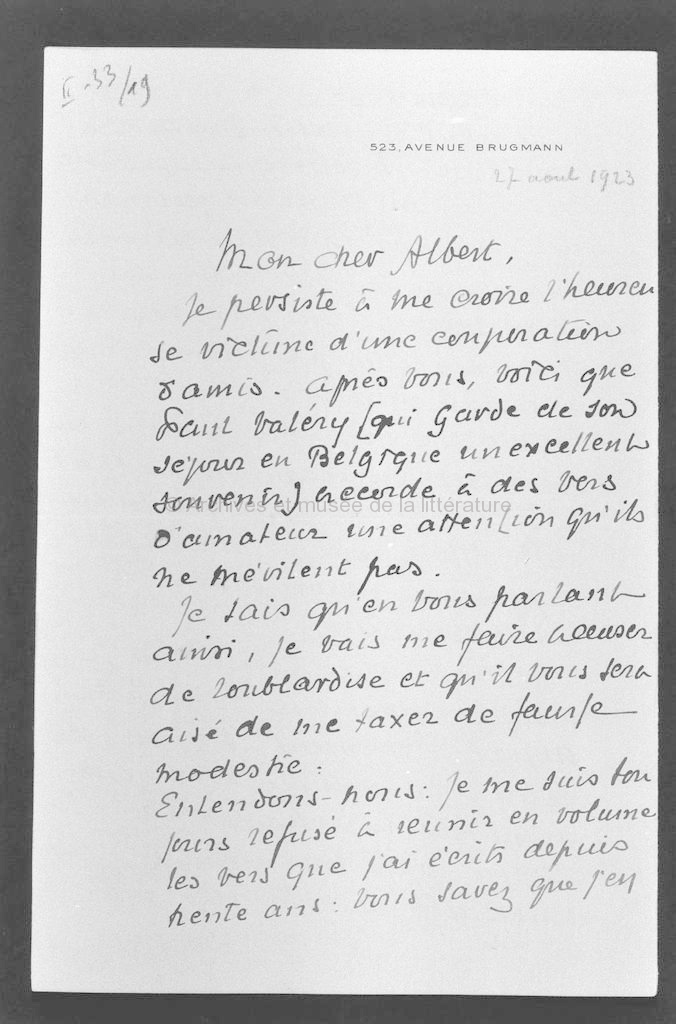 II-33/19
523, AVENUE BRUGMANN
27 aout 1923
Mon cher Albert,
Je persiste à me croire l'heureu
se victime d'une conspiration
d'amis. Après vous, voici que
Paul Valéry (qui garde de son
séjour en Belgique un excellent
souvenir) accorde à des vers
© Archives et musée de la littérature
d'amateur une attention qu'ils
ne méritent pas.
Je sais qu'en vous parlant
ainsi, je vais me faire accuser
de roublardise et qu'il vous sera
aisé de me taxer de fausse
modestie.
Entendons-nous: je me suis tou
jours refusé à réunir en volume
les vers que j'ai écrits depuis
trente ans: vous savez que j'en